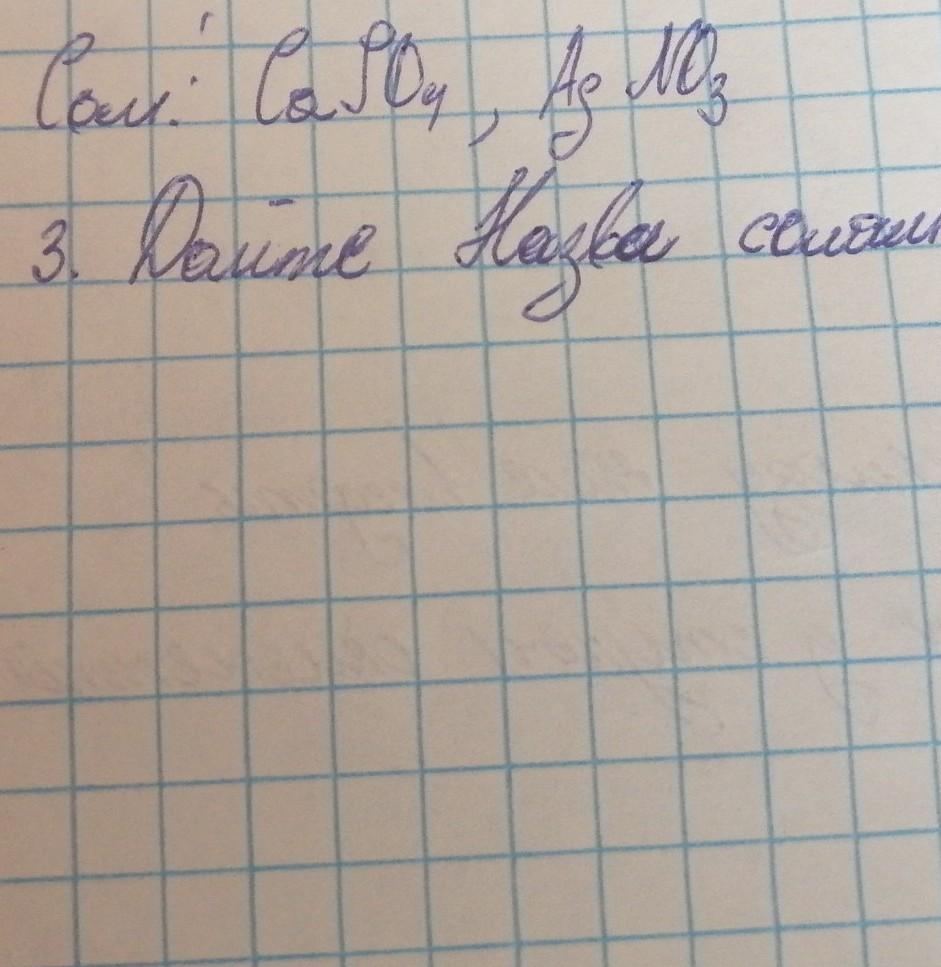 Солі: CaSO4, AgNO3
3. Дайте Назва солям